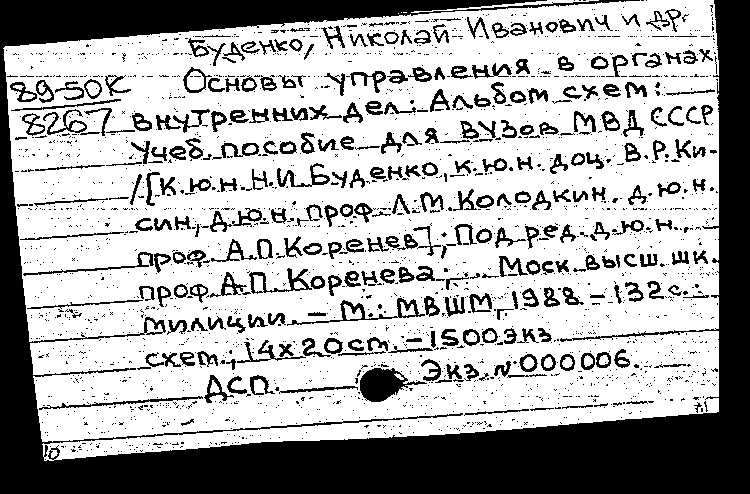 Буденко, Николай Иванович и др.
89-50К Основы управления в органах
8267 внутренних дел: Альбом схем:
Учеб. пособие для вузов МВД СССР
/[К.ю.н. Н.И. Буденко, к.ю.н. доц. В.Р. Ки-
син, д.ю.н., проф. Л.М. Колодкин, д.ю.н.
проф. А.П. Коренев]; Под ред. д.ю.н.,
проф. А.П. Коренева; ... Моск. высш. шк.
милиции. – М.: МВШМ, 1988. – 132 с.:
схем.; 14х20 см. – 1500 экз
ДСП. Экз. № 000006.